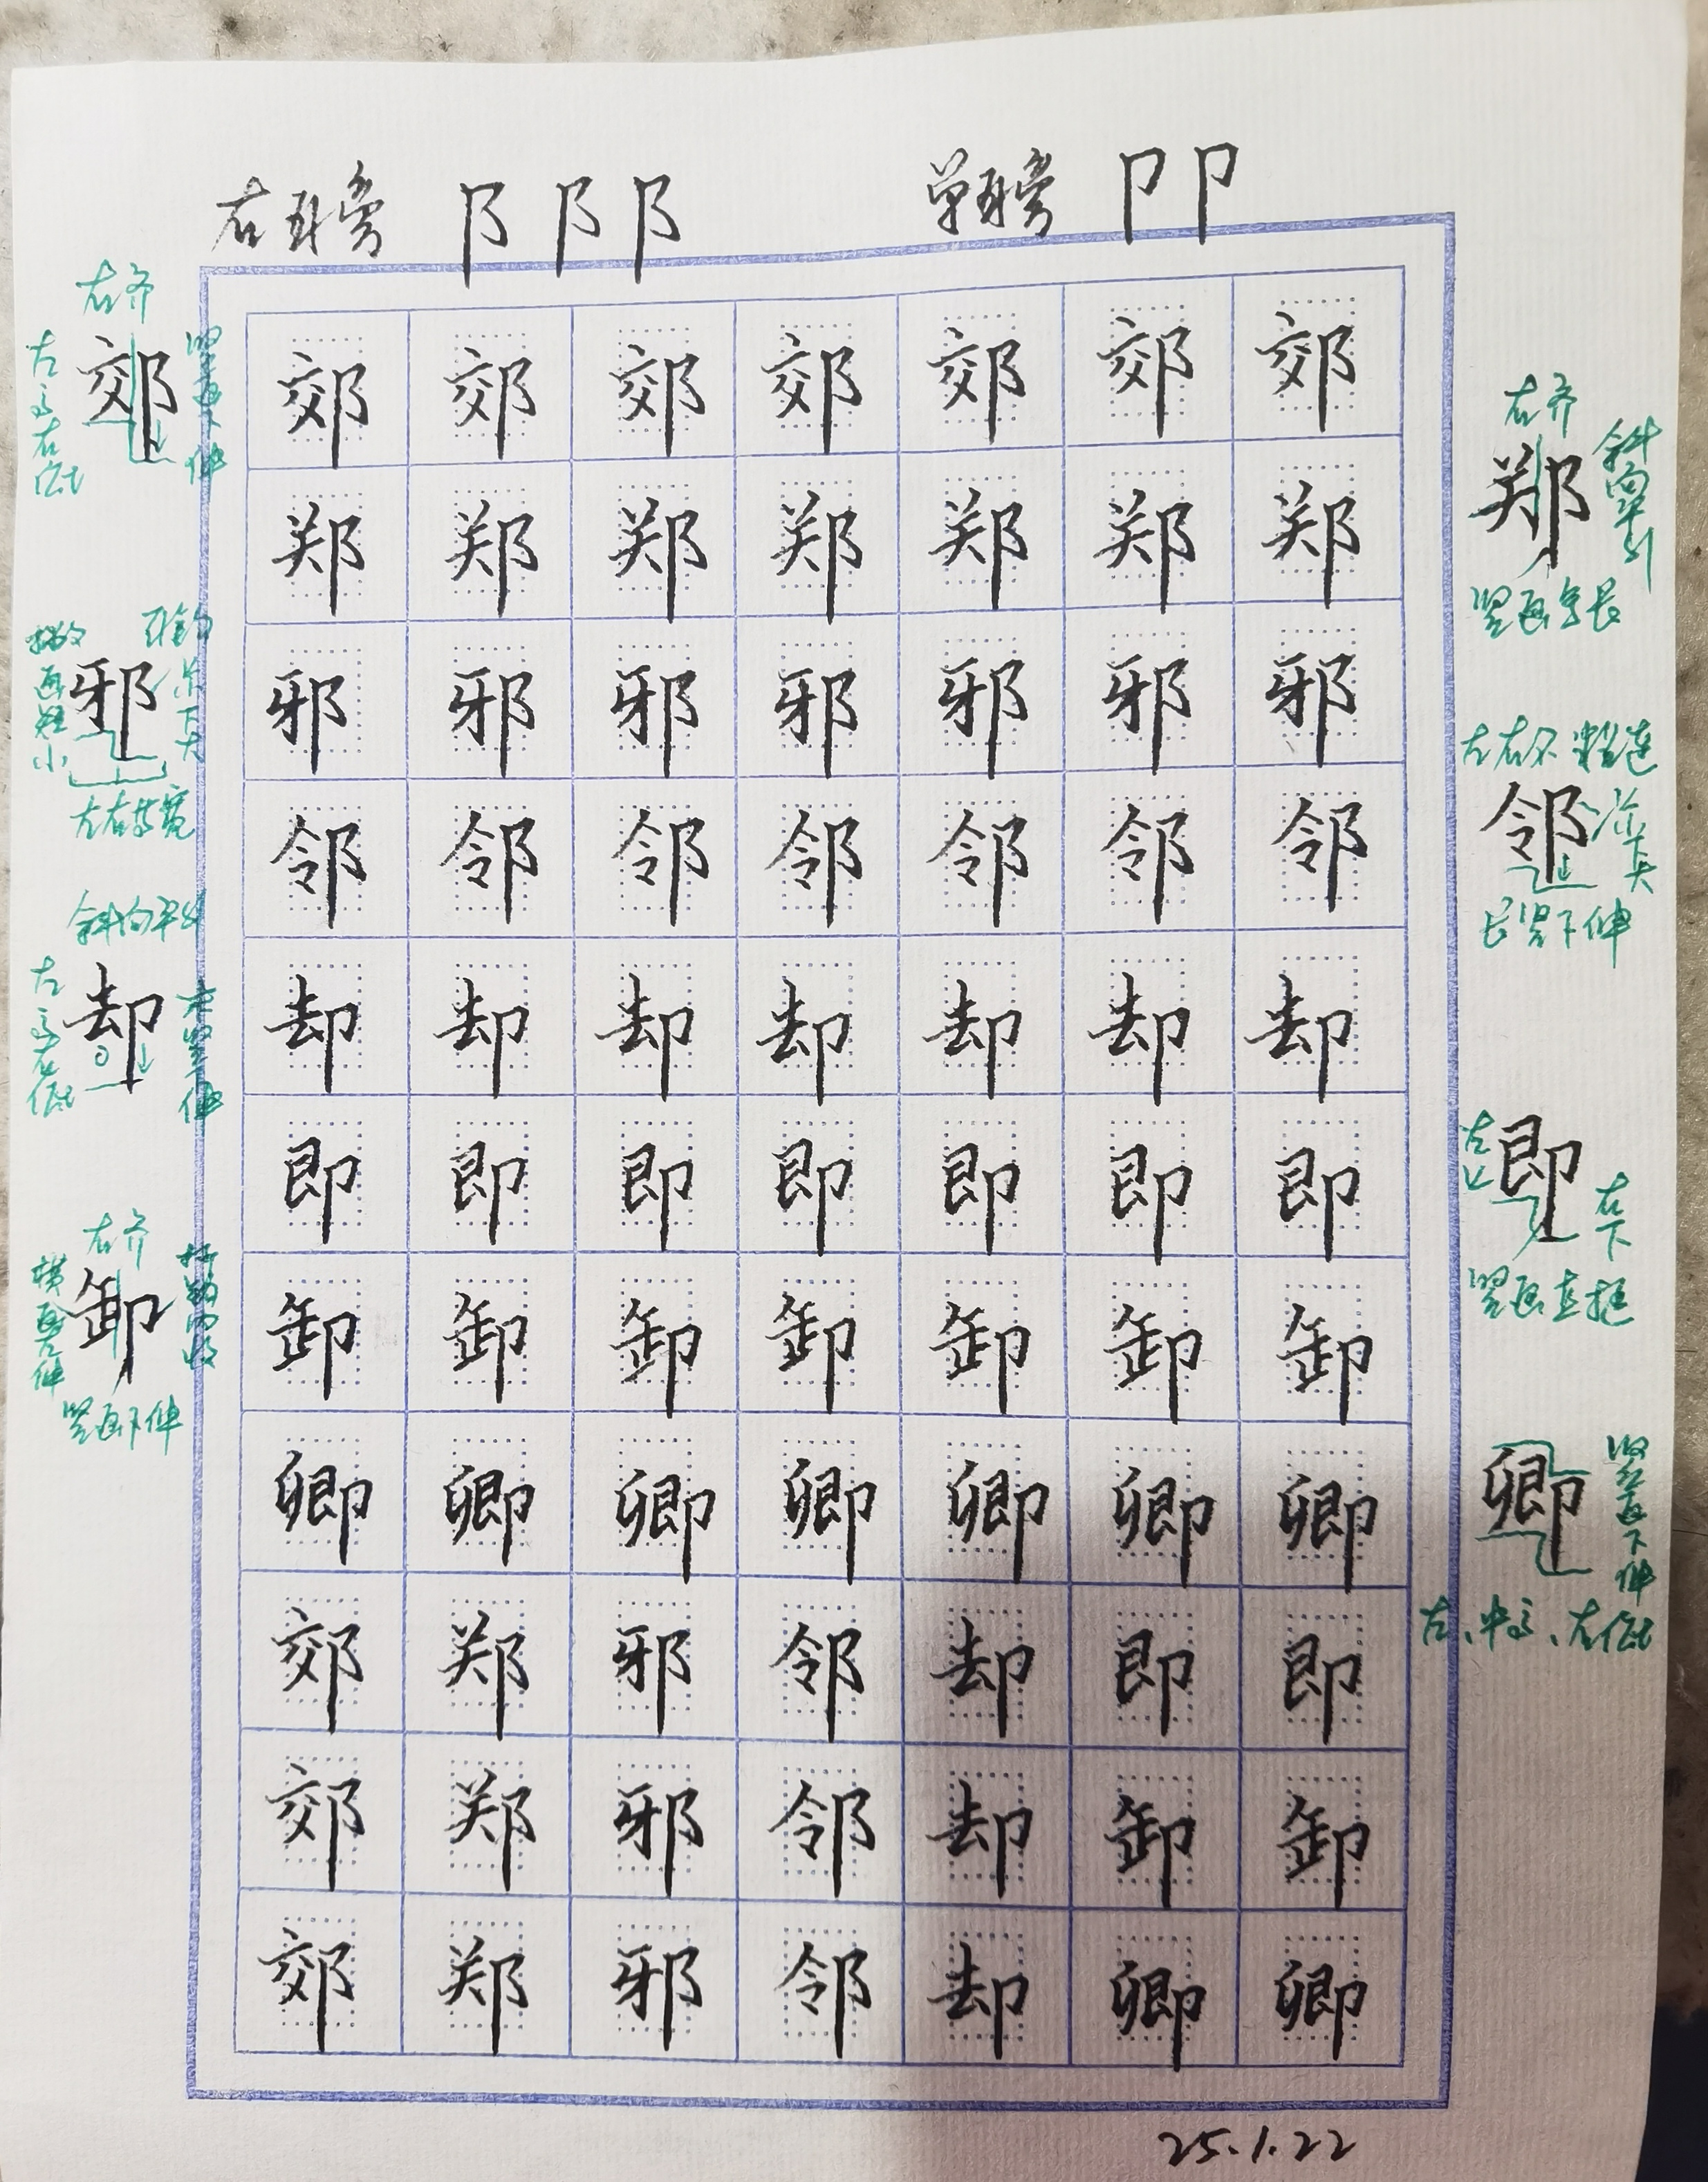 右耳旁 阝 阝 阝 单耳旁 卩 卩
右齐
郊
左高右低
竖画下伸
邪
撇画短小
左右等宽
斜向平行
却
左高右低
末竖下伸
右齐
卸
横画左伸
竖画下伸
郊 郊 郊 郊 郊 郊 郊
郑 郑 郑 郑 郑 郑 郑
邪 邪 邪 邪 邪 邪 邪
邻 邻 邻 邻 邻 邻 邻
却 却 却 却 却 却 却
即 即 即 即 即 即 即
卸 卸 卸 卸 卸 卸 卸
卿 卿 卿 卿 卿 卿 卿
郊 郑 邪 邻 却 即 即
郊 郑 邪 邻 却 卸 卸
郊 郑 邪 邻 却 卿 卿
右齐
郑
斜向平行
竖画宜长
左右不粘连
邻
长竖下伸
左上
即
右下
竖画直挺
卿
竖画下伸
左、中高、右低
25.1.22